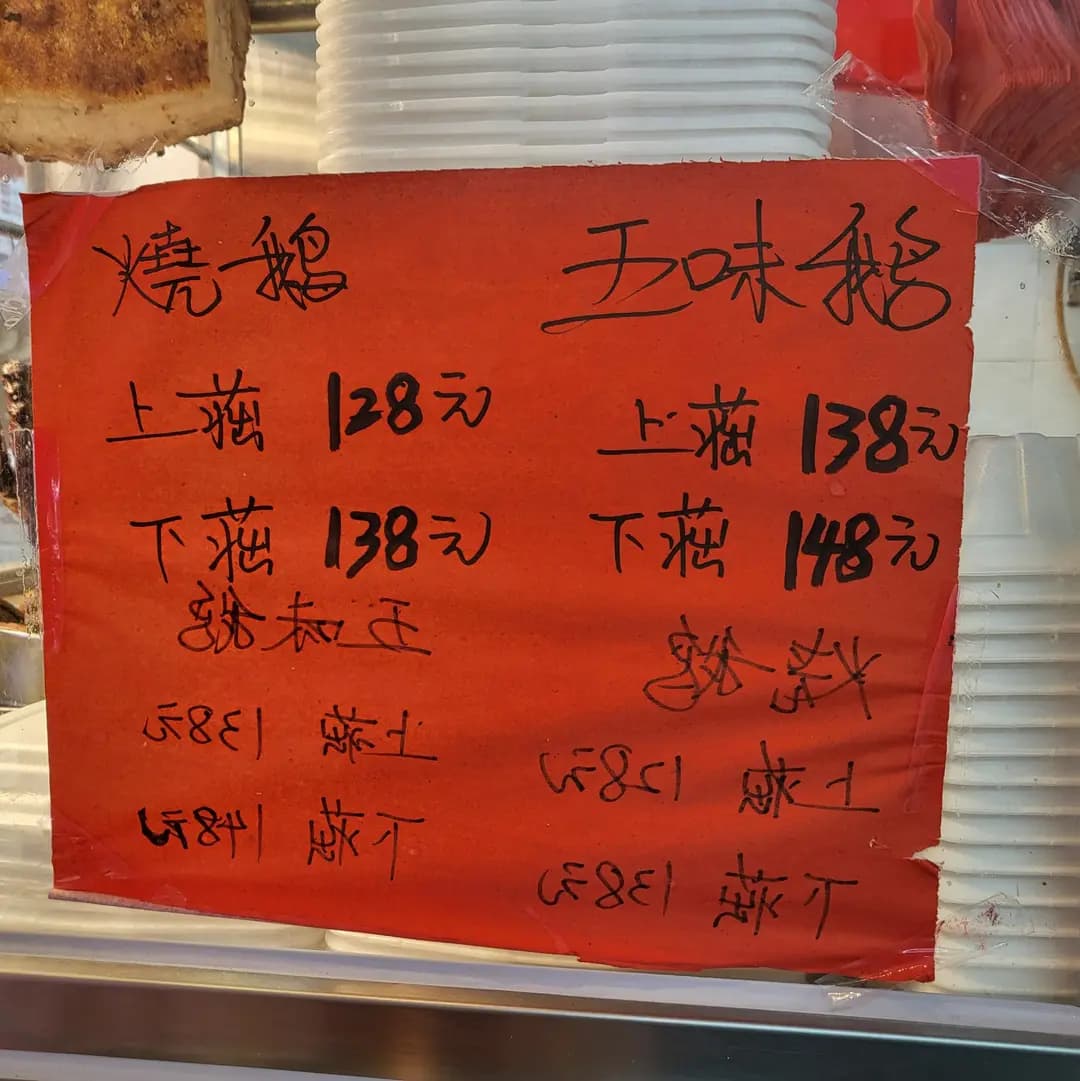 燒鵝 五味鵝
上莊 128元 上莊 138元
下莊 138元 下莊 148元
五味鵝 燒鵝
上莊 138元 上莊 128元
下莊 148元 下莊 138元